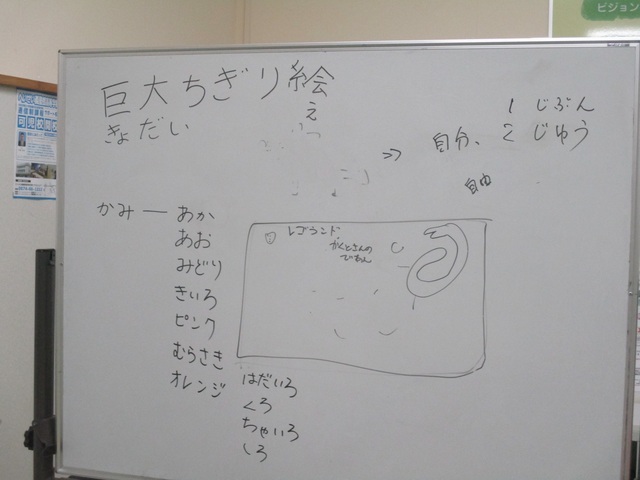 巨大ちぎり絵
きょだい
え
1 じぶん
⇒ 自分、 2 じゆう
自由
かみ ー あか
あお
みどり
きいろ
ピンク
むらさき
オレンジ
はだいろ
くろ
ちゃいろ
しろ
① レゴランド
ビジョン